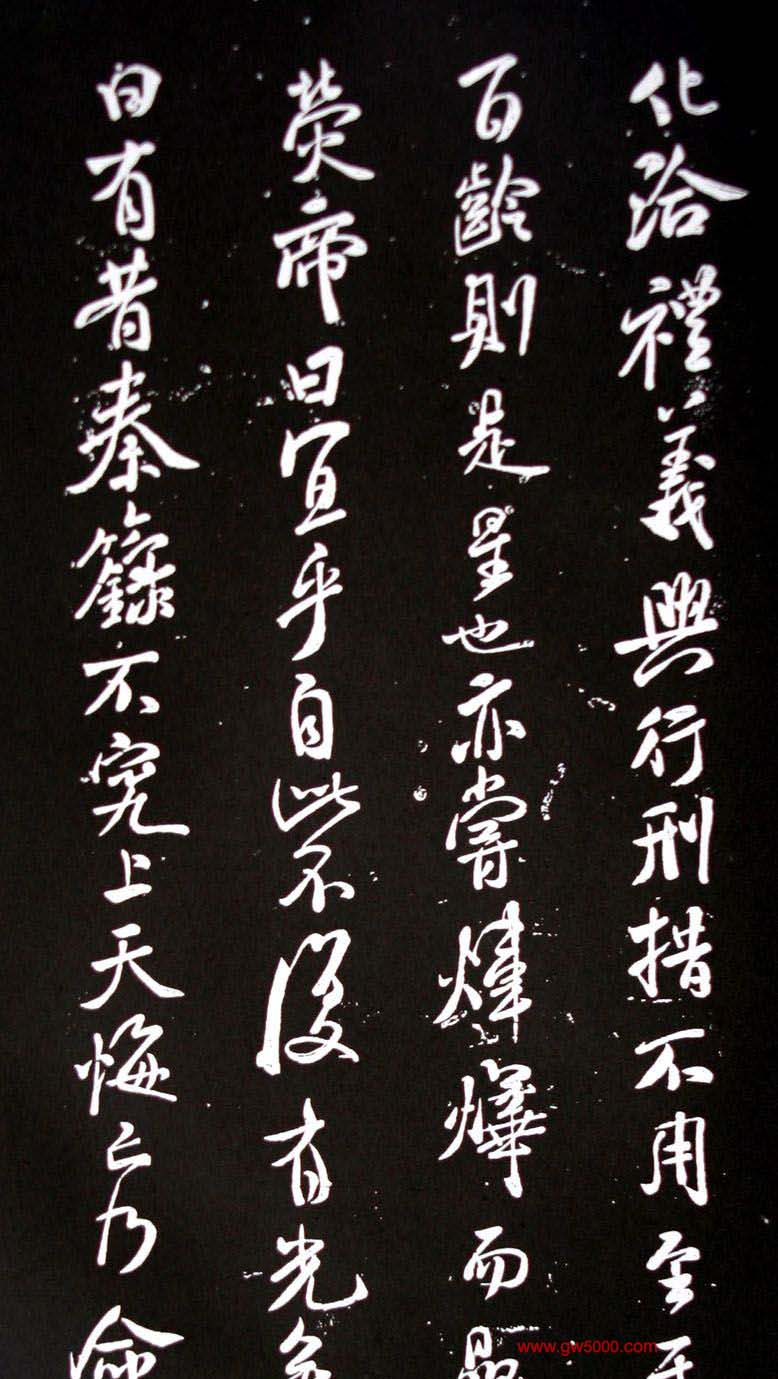 化洽禮義興行刑措不用至于
百齡則是星也亦嘗煒燁而晶
熒帝曰宜乎自此不復有光矣
曰有昔秦籙不究上天悔亡乃
www.gw5000.com